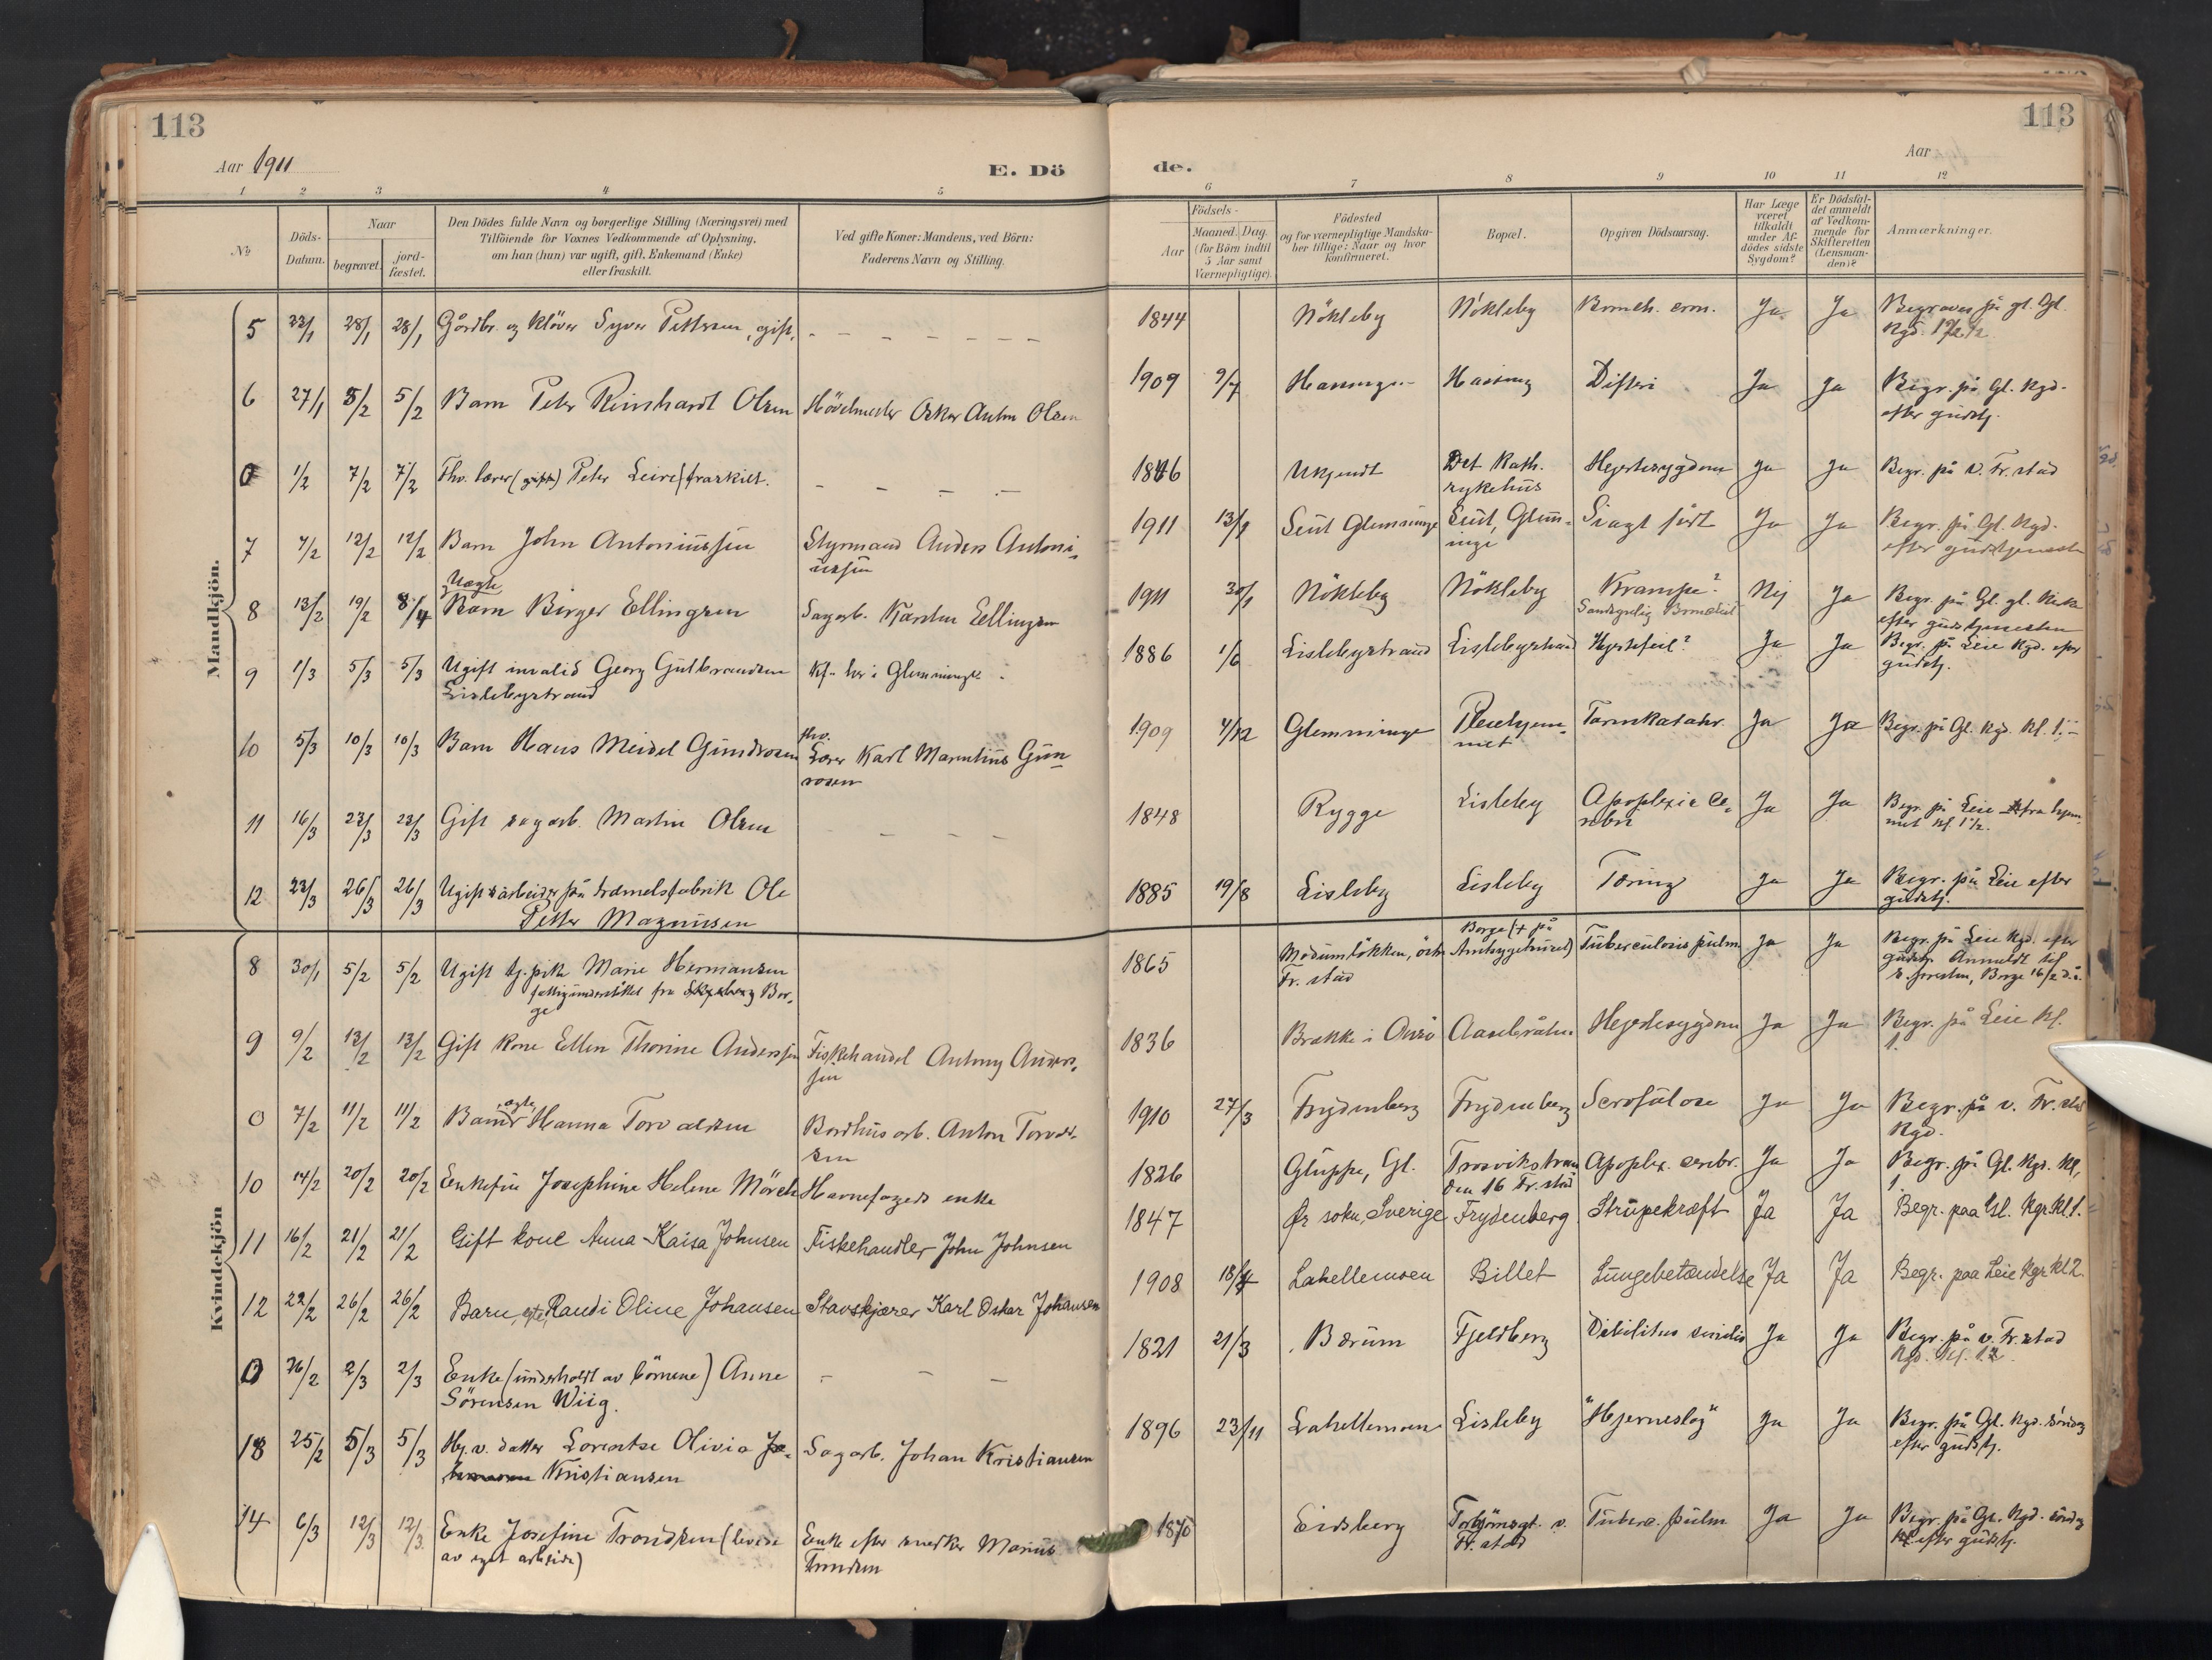 113
Aar 1911
E. Dö
1 2 3 4 5
No
Döds-
Datum.
Naar
begravet.
jord-
fæstet.
Den Dödes fulde Navn og borgerlige Stilling (Næringsvei) med
Tilföiende for Voxnes Vedkommende af Oplysning,
om han (hun) var ugift, gift, Enkemand (Enke)
eller fraskilt.
Ved gifte Koner: Mandens, ved Börn:
Faderens Navn og Stilling.
Mandkjön.
5 23/1 28/1 28/1 Gårdbr. og Klöver Syver Pettersen, gift.
6 27/1 5/2 5/2 Barn Peter Reinhardt Olsen Hövelmester Oskar Anton Olsen
0 1/2 7/2 7/2 Fhv. lærer (gift) Peter Leire (fraskilt.
7 7/2 12/2 12/2 Barn John Antoniussen Styrmand Anders Antoni-
ussen
Uægte
8 13/2 19/2 8/4 Barn Birger Ellingsen Sagarb. Karsten Ellingsen
9 1/3 5/3 5/3 Ugift invalid Georg Gulbrandsen
Lislebystrand
10 5/3 10/3 10/3 Barn Hans Meidel Gundrosen fhv. Lærer Karl Marentius Gun-
rosen
11 16/3 23/3 23/3 Gift sagarb. Martin Olsen
12 23/3 26/3 26/3 Ugift arbeider på tramelsfabrik Ole
Petter Magnussen
Kvindekjön
8 30/1 5/2 5/2 Ugift tj.pike Marie Hermansen
fattigunderstöttet fra Bor-
ge
9 9/2 13/2 13/2 Gift kone Ellen Thorine Anderssen Fiskehandl Antony Anders-
sen
0 7/2 11/2 11/2 Barn ægte Hanna Torvaldsen Bordhusarb. Anton Torvald-
sen
10 14/2 20/2 20/2 Enkefru Josephine Helene Mörch Havnefogeds enke
11 16/2 21/2 21/2 Gift kone Anna Kaisa Johnsen Fiskehandler John Johnsen
12 22/2 26/2 26/2 Barn, egte, Randi Oline Johansen Stavskjærer Karl Oskar Johansen
0 26/2 2/3 2/3 Enke (underholdt av börnene) Anne
Sörensen Wiig.
13 25/2 5/3 5/3 Hj.v. datter Lorentse Olivia
Kristiansen Sagarb. Johan Kristiansen
14 6/3 12/3 12/3 Enke Josefine Trondsen (levede
av eget arbeide) Enke efter snedker Marius
Trondsen
113
Aar
de.
6 7 8 9 10 11 12
Födsels-
Aar
Maaned. Dag.
(for Börn indtil
5 Aar samt
Værnepligtige).
Födested
og for værnepligtige Mandska-
ber tillige: Naar og hvor
konfirmeret.
Bopæl.
Opgiven Dödsaarsag.
Har Læge
været
tilkaldt
under Af-
dödes sidste
Sygdom?
Er Dödsfal-
det anmeldt
af Vedkom-
mende for
Skifteretten
(Lensman-
den)?
Anmærkninger.
1844 Nökleby Nökleby Bronch. cron. Ja Ja Begraves på gl. Gl.
Kgd.
1909 9/7 Difteri Ja Ja Begr. på Gl. Kgd.
efter gudstj.
1846 Ukjendt Det Kath.
sykehus Hjertesygdom Ja Ja Begr. på v. Fr.stad
1911 13/1 Seut Glemminge Seut, Glem-
minge Svagt födt Ja Ja Begr. på Gl. Kgd.
efter gudstjenesten
1911 30/1 Nökleby Nökleby Krampe?
Sandsynlig Nej Ja Begr. på Gl. gl.
efter gudstjenesten
1886 1/6 Lislebystrand Lislebystrand Hjertefeil? Ja Ja Begr. på Leie Kgd. efter
gudstj.
1909 4/12 Glemminge Pleiehjem-
met Tarmkatahr. Ja Ja Begr. på Gl. Kgd. Kl. 1
1848 Rygge Lisleby Apoplexia Ce-
rebri Ja Ja Begr. på Leie fra hjem-
met kl. 1½.
1885 19/8 Lisleby Lisleby Tæring Ja Ja Begr. på Leie efter
gudstj.
1865 Modumlökken, östre
Fr.stad Borge (+ på
Amtsygehuset) Tuberculosis pulm. Ja Ja Begr. på Leie Kgd. efter
gudstj. Anmeldt til
s. presten, Borge 16/2 d.å.
1836 Brække i Onsö Hjertesygdom Ja Ja Begr. på Leie Kl.
1.
1910 27/3 Frydenberg Frydenberg Scrofulose Ja Ja Begr. på v. Fr.stad
Kgd.
1826 Gluppe, Gl. Trosvikstran-
den 16 Fr.stad Apoplex. cerebr. Ja Ja Begr. på Gl. Kgd. Kl.
1.
1847 Ør sokn, Sverige Frydenberg Strupekræft Ja Ja Begr. paa Gl. Kgr. Kl. 1.
1908 18/4 Lahellemoen Billet Lungebetændelse Ja Ja Begr. paa Leie Kgr Kl 2
1821 21/3 Bærum Fjeldberg Debilitas senilis Ja Ja Begr. på v. Fr.stad
Kgd. Kl. 12.
1896 23/11 Lahellemoen Lisleby "Hjerneslag" Ja Ja Begr. på Gl. Kgd. söndag
efter gudstj.
1870 Eidsberg Torbjörnsgt. v.
Fr.stad Tuberc. pulm Ja Ja Begr. på Gl. Kgd. söndag
efter gudstj.